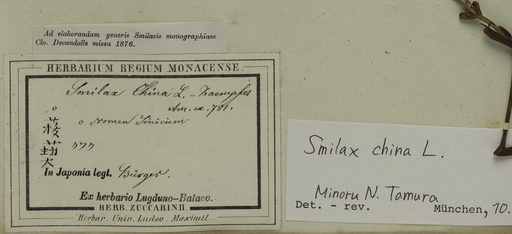 Ad elaborandam generis Smilacis monographiam
Clo. Decandolle missa 1876.
HERBARIUM REGIUM MONACENSE.
Smilax China L. - Kaempfer
Am. ic. 781.
o nomen Sinicum
In Japonia legt. Bürger.
Ex herbario Lugduno-Batavo.
HERB. ZUCCARINII.
Herbar. Univ. Ludov. Maximil.
Smilax china L.
Minoru N. Tamura
Det. - rev. München, 10.